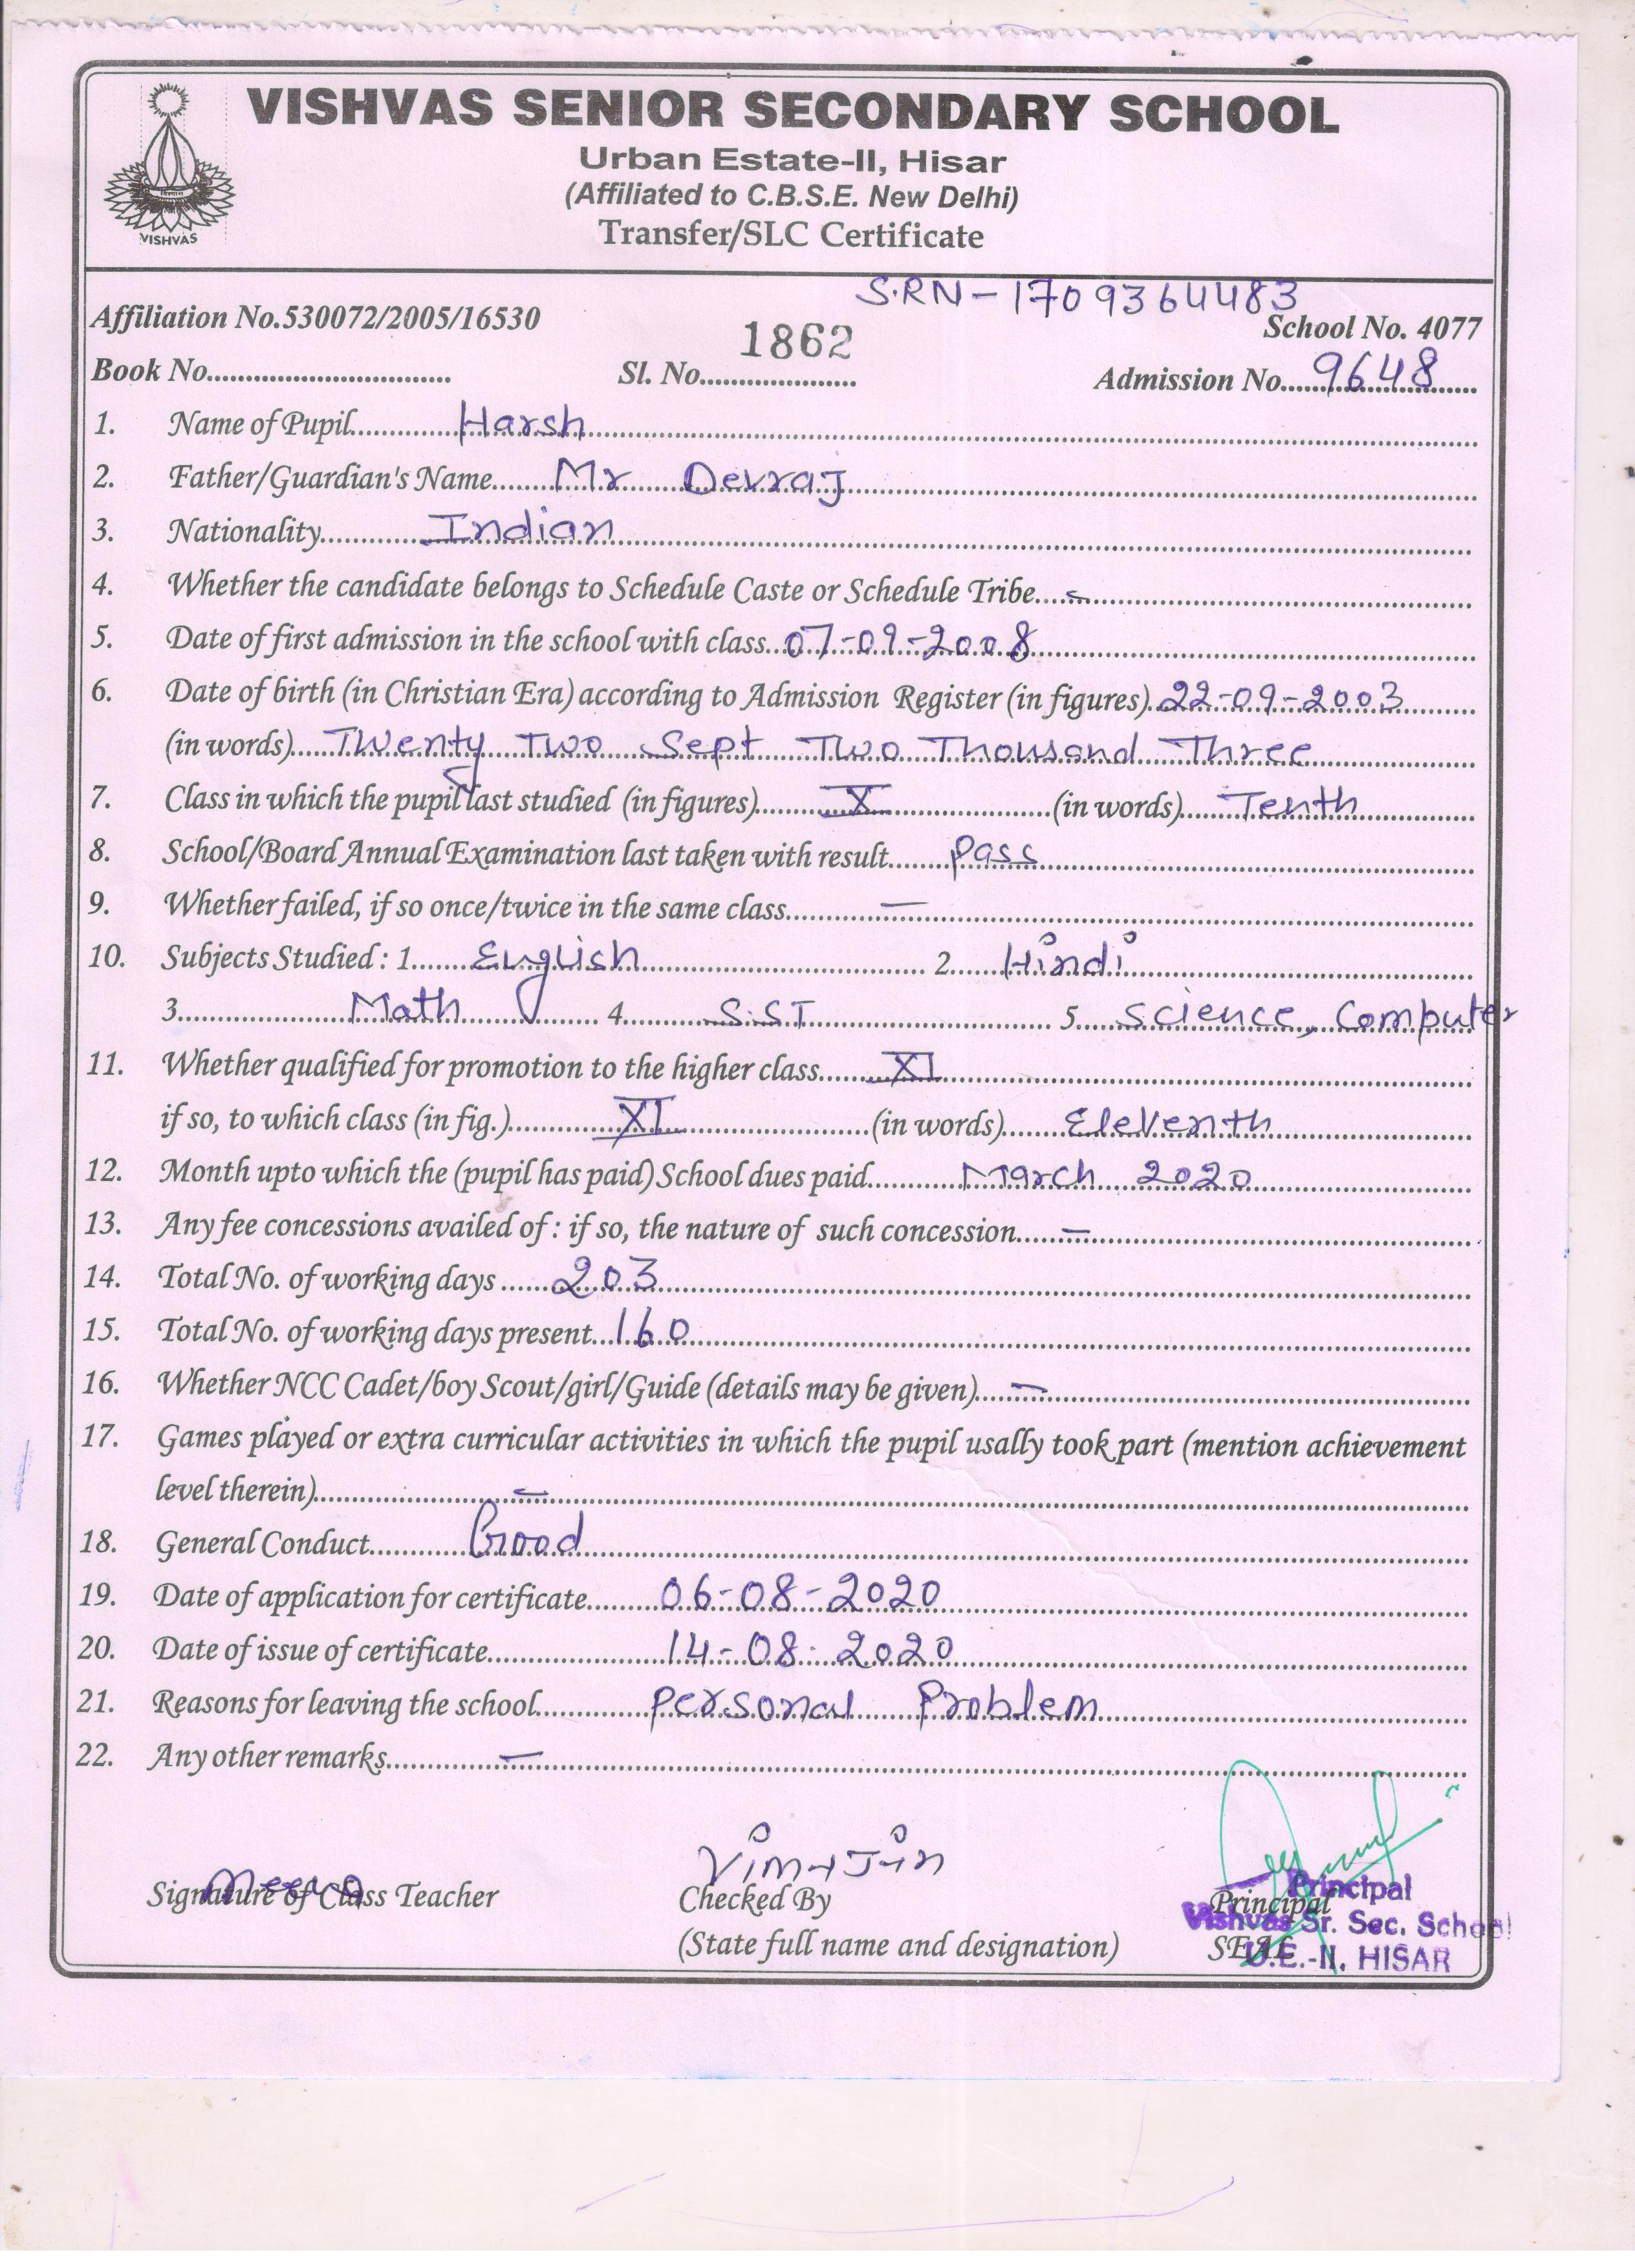 VISHVAS SENIOR SECONDARY SCHOOL
Urban Estate-II, Hisar
(Affiliated to C.B.S.E. New Delhi)
Transfer/SLC Certificate
विश्वास
VISHVAS
S.RN-1709364483
Affiliation No.530072/2005/16530 School No. 4077
Book No. Sl. No. 1862 Admission No. 9648
1. Name of Pupil Harsh
2. Father/Guardian's Name Mr Devraj
3. Nationality Indian
4. Whether the candidate belongs to Schedule Caste or Schedule Tribe -
5. Date of first admission in the school with class 07-09-2008
6. Date of birth (in Christian Era) according to Admission Register (in figures) 22-09-2003
(in words) Twenty Two Sept Two Thousand Three
7. Class in which the pupil last studied (in figures) X (in words) Tenth
8. School/Board Annual Examination last taken with result Pass
9. Whether failed, if so once/twice in the same class -
10. Subjects Studied : 1. English 2. Hindi
3. Math 4. S.ST 5. Science, Computer
11. Whether qualified for promotion to the higher class XI
if so, to which class (in fig.) XI (in words) Eleventh
12. Month upto which the (pupil has paid) School dues paid March 2020
13. Any fee concessions availed of : if so, the nature of such concession -
14. Total No. of working days 203
15. Total No. of working days present 160
16. Whether NCC Cadet/boy Scout/girl/Guide (details may be given) -
17. Games played or extra curricular activities in which the pupil usally took part (mention achievement
level therein) -
18. General Conduct Good
19. Date of application for certificate 06-08-2020
20. Date of issue of certificate 14-08-2020
21. Reasons for leaving the school Personal Problem
22. Any other remarks -
Meena
Signature of Class Teacher Checked By Principal
(State full name and designation) SEAL
Principal
Vishvas Sr. Sec. School
U.E.-II, HISAR